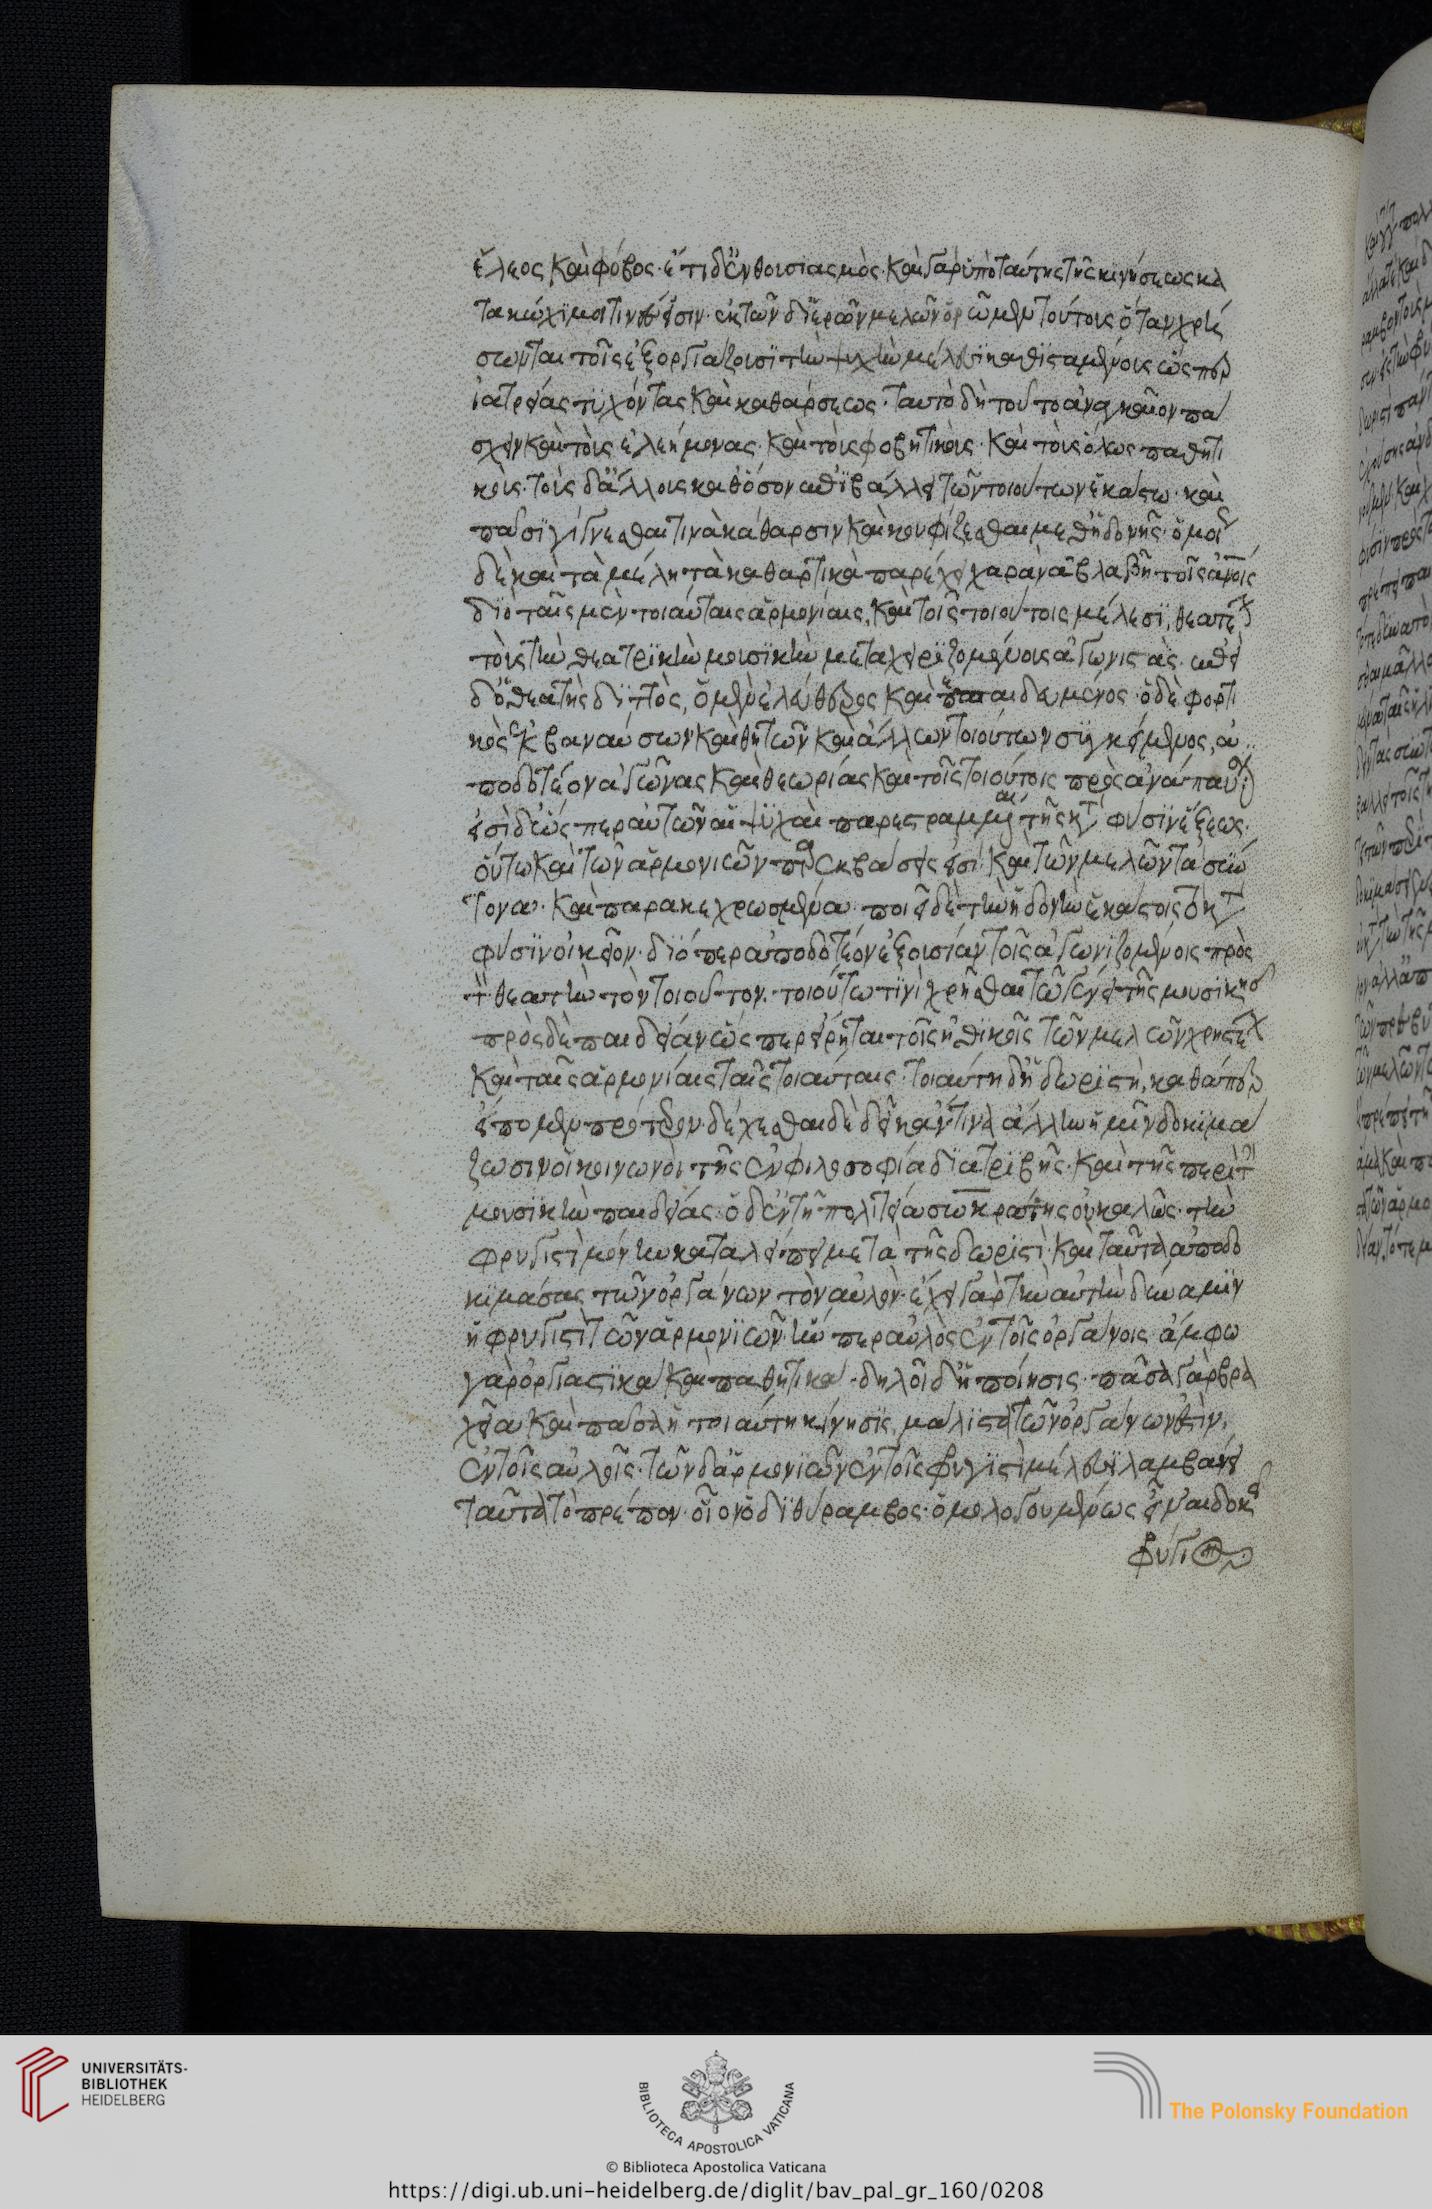 ἔλεος καὶ φόβος· ἔτι δ' ἐνθουσιασμός· καὶ γὰρ ὑπὸ ταύτης τῆς κινήσεως κα
τακώχιμοί τινές εἰσιν· ἐκ τῶν δ' ἱερῶν μελῶν ὁρῶμεν τούτοις ὅταν χρή
σωνται τοῖς ἐξοργιάζουσι τὴν ψυχὴν μέλεσι καθισταμένοις ὥσπερ
ἰατρείας τυχόντας καὶ καθάρσεως· ταυτὸ δὴ τοῦτο ἀναγκαῖον πά
σχειν καὶ τοὺς ἐλεήμονας· καὶ τοὺς φοβητικοὺς· καὶ τοὺς ὅλως παθητι
κούς· τοὺς δ' ἄλλους καθόσον ἐπιβάλλει τῶν τοιούτων ἑκάστω· καὶ
πᾶσι γίγνεσθαί τινα κάθαρσιν καὶ κουφίζεσθαι μεθ' ἡδονῆς· ὁμοί
δὲ καὶ τὰ μέλη τὰ καθαρτικὰ παρέχει χαρὰν ἀβλαβῆ τοῖς ἀνοις
διὸ ταῖς μὲν τοιαύταις ἁρμονίαις, καὶ τοῖς τοιούτοις μέλεσι, θεατέ
τοὺς τὴν θεατρικὴν μουσικὴν μεταχειριζομένους ἀγωνιστάς· ἐπεὶ
δ' ὁ θεατὴς διττὸς, ὁ μὲν ἐλεύθερος καὶ πεπαιδευμένος· ὁ δὲ φορτι
κὸς ἐκ βαναύσων καὶ θητῶν καὶ ἄλλων τοιούτων συγκείμενος, ἀ
ποδοτέον ἀγῶνας καὶ θεωρίας καὶ τοῖς τοιούτοις πρὸς ἀνάπαυσιν
εἰσὶ δ' ὥσπερ αὐτῶν αἱ ψυχαὶ παρεστραμμέναι τῆς κατὰ φύσιν ἕξεως·
οὕτω καὶ τῶν ἁρμονιῶν παρεκβάσεις εἰσὶ· καὶ τῶν μελῶν τὰ σύν
τονα· καὶ παρακεχρωσμένα· ποιεῖ δὲ τὴν ἡδονὴν ἑκάστοις τὸ κατὰ
φύσιν οἰκεῖον· διόπερ ἀποδοτέον ἐξουσίαν τοῖς ἀγωνιζομένοις πρὸς
τ θεατὴν τὸν τοιοῦτον· τοιούτω τινὶ χρῆσθαι τῶ γένει τῆς μουσικῆς
πρὸς δὲ παιδείαν ὥσπερ εἴρηται τοῖς ἠθικοῖς τῶν μελῶν χρηστέ
καὶ ταῖς ἁρμονίαις ταῖς τοιαύταις· τοιαύτη δ' ἡ δωριστὶ, καθάπερ
εἴπομεν πρότερον· δέχεσθαι δὲ δεῖ κἄν τινα ἄλλην ἡμῖν δοκιμά
ζωσιν οἱ κοινωνοὶ τῆς ἐν φιλοσοφία διατριβῆς· καὶ τῆς περὶ τὴν
μουσικὴν παιδείας· ὁ δ' ἐν τῆ πολιτεία σωκράτης οὐ καλῶς· τὴν
φρυγιστὶ μόνην καταλείπει μετὰ τῆς δωριστὶ· καὶ ταῦτα ἀποδο
κιμάσας τῶν ὀργάνων τὸν αὐλόν· ἔχει γὰρ τὴν αὐτὴν δύναμιν
ἡ φρυγιστὶ τῶν ἁρμονιῶν· ἥνπερ αὐλὸς ἐν τοῖς ὀργάνοις· ἄμφω
γὰρ ὀργιαστικὰ καὶ παθητικά· δηλοῖ δ' ἡ ποίησις· πᾶσα γὰρ βα
χεία καὶ πᾶσα ἡ τοιαύτη κίνησις, μάλιστα τῶν ὀργάνων ἐστὶν,
ἐν τοῖς αὐλοῖς· τῶν δ' ἁρμονιῶν ἐν τοῖς φρυγιστὶ μέλεσι λαμβάνει
ταῦτα τὸ πρέπον· οἷον ὁ διθύραμβος· ὁμολογουμένως εἶναι δοκεῖ
φρύγι
UNIVERSITÄTS-
BIBLIOTHEK
HEIDELBERG
BIBLIOTECA APOSTOLICA VATICANA
The Polonsky Foundation
© Biblioteca Apostolica Vaticana
https://digi.ub.uni-heidelberg.de/diglit/bav_pal_gr_160/0208